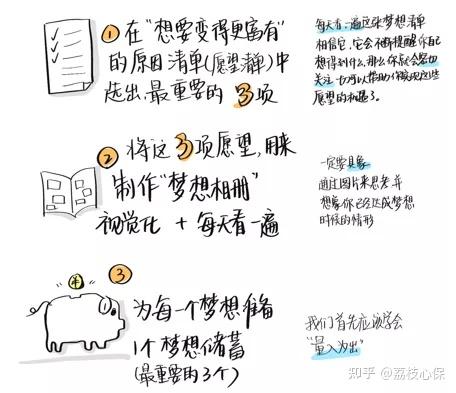 ① 在“想要变得更富有”
的原因清单(愿望清单)中
选出最重要的 3项
每天看一遍这张梦想清单
相信它,它会不断提醒你自己
想得到什么,那么你就会密切
关注,可以帮助你实现这些
愿望的机遇了。
② 将这3项愿望,用来
制作“梦想相册”
视觉化 + 每天看一遍
一定要具象
通过图片来思考并
想象你已经达成梦想
时候的情形
③
为每一个梦想准备
1个梦想储蓄
(最重要的3个)
我们首先应该学会
“量入为出”
知乎 @荔枝心保